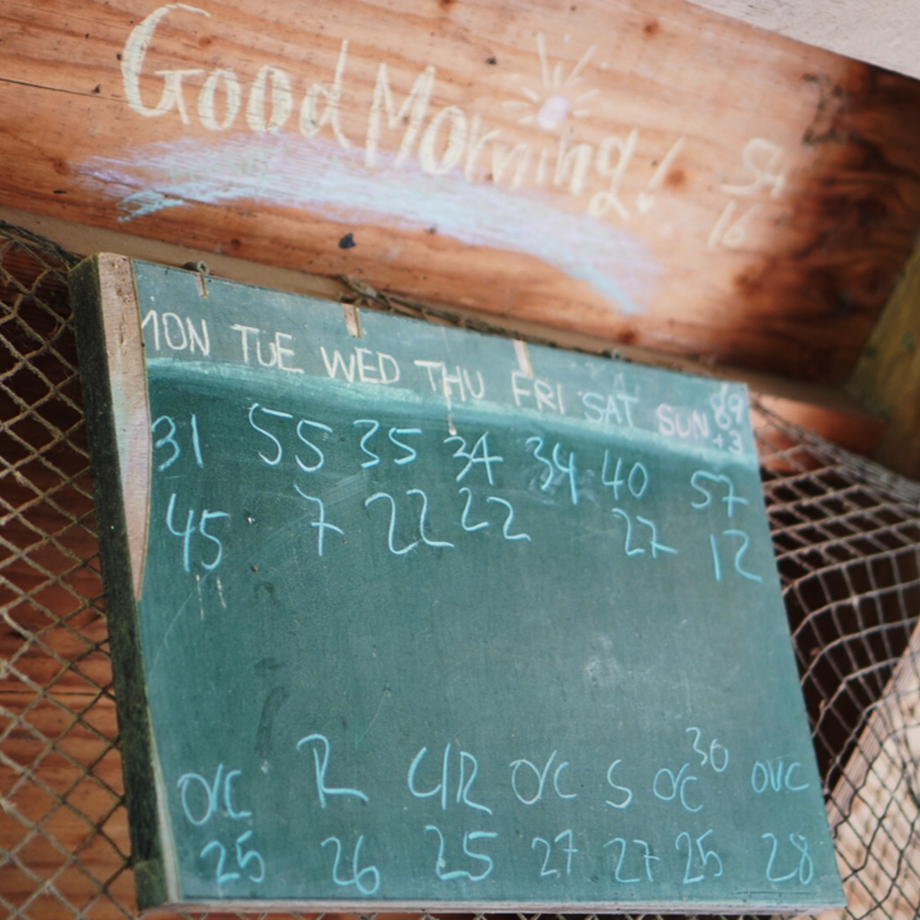 Good Morning!
54
16
MON TUE WED THU FRI SAT SUN 89
+3
31 55 35 34 34 40 57
45 7 22 22 27 12
11
O/C R C/R O/C S O/C 30 O/C
25 26 25 27 27 25 28